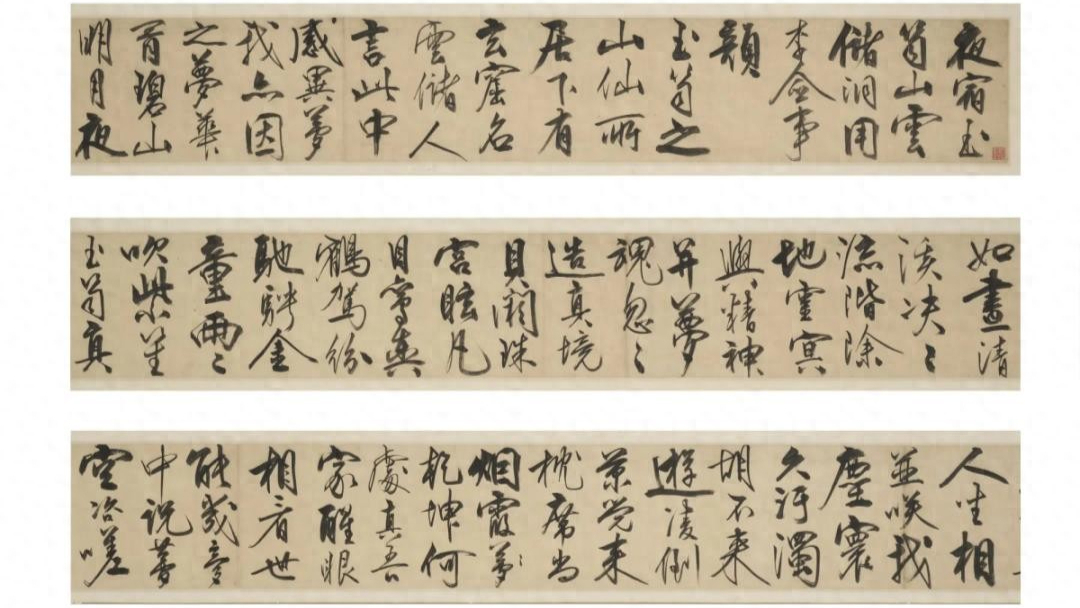 夜宿玉
笥山雲
儲洞用
李僉事
韻
玉笥之
山仙所
居下有
玄窟名
雲儲人
言此中
感異夢
我亦因
之夢華
胥碧山
明月夜
如晝清
溪决〻
流階除
地靈冥
與精神
并夢
魂忽〻
造真境
貝闕珠
宮眩凡
目鸞輿
鶴駕紛
馳騁金
童兩〻
吹紫笙
玉笥真
人坐相
並咲我
塵寰
久汙濁
胡不來
遊凌倒
景覺來
枕席尚
烟霞夢〻
乾坤何
處真吾
家醒眼
相看世
能幾夢
中說夢
空咨嗟